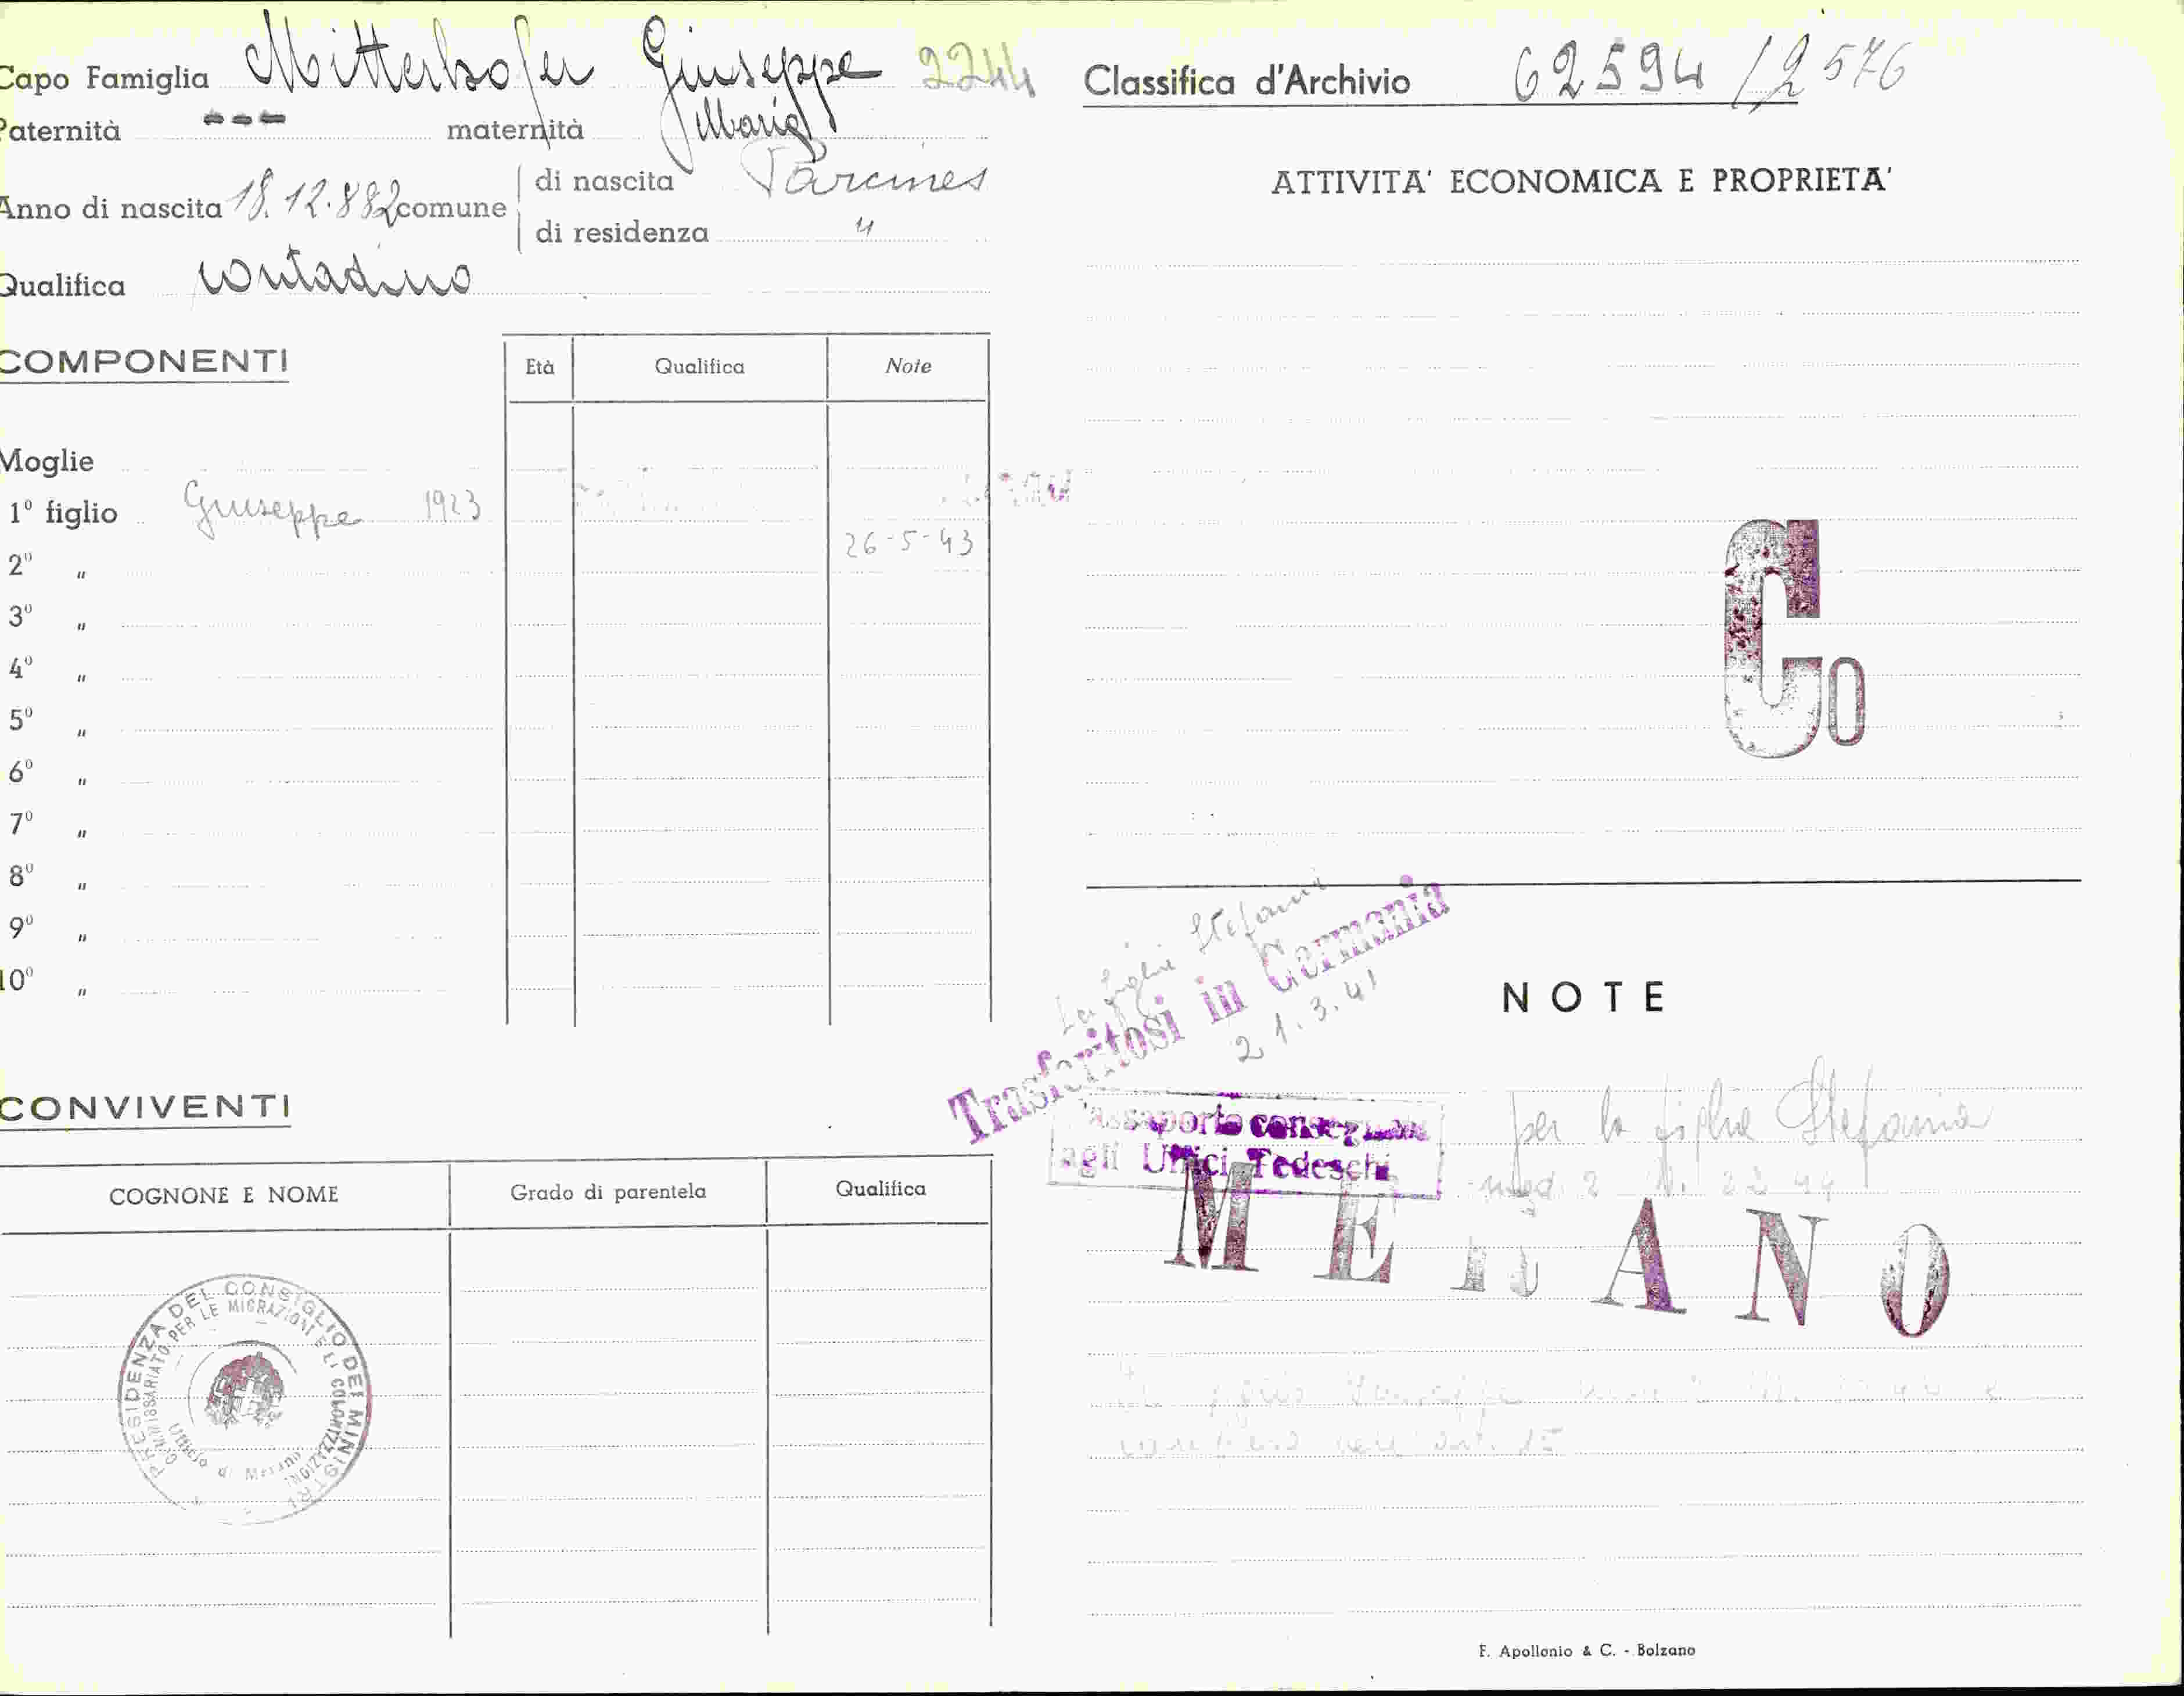 Capo Famiglia Mitterhofer Giuseppe 2244
Paternità --- maternità Maria
Anno di nascita 18.12.882 comune
di nascita Parcines
di residenza "
Qualifica contadino
COMPONENTI
Età Qualifica Note
Moglie
1º figlio Giuseppe 1923
26-5-43
2º "
3º "
4º "
5º "
6º "
7º "
8º "
9º "
10º "
CONVIVENTI
COGNONE E NOME Grado di parentela Qualifica
PRESIDENZA DEL CONSIGLIO DEI MINISTRI
COMMISSARIATO PER LE MIGRAZIONI E LA COLONIZZAZIONE
Ufficio di Merano
Classifica d'Archivio 62594 / 2576
ATTIVITA' ECONOMICA E PROPRIETA'
Co
La figlia Stefania
Trasferitosi in Germania
21.3.41
NOTE
Passaporto consegnato
agli Uffici Tedeschi
per la figlia Stefania
mod 2 N. 2244
MERANO
F. Apollonio & C. - Bolzano